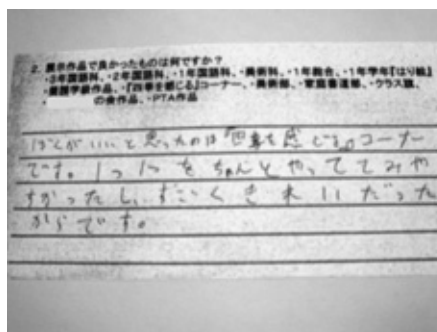 2. 展示作品で良かったものは何ですか？
・3年国語科、・2年国語科、・1年国語科、・美術科、・1年総合、・1年学年『はり絵』
・愛護学級作品、・『四季を感じる』コーナー、・美術部、・家庭書道部、・クラス旗、
の会作品、・PTA作品
ぼくがいいと思ったのは『四季を感じる』コーナー
です。1つ1つをちゃんとやっててみや
すかったし、すごくきれいだった
からです。